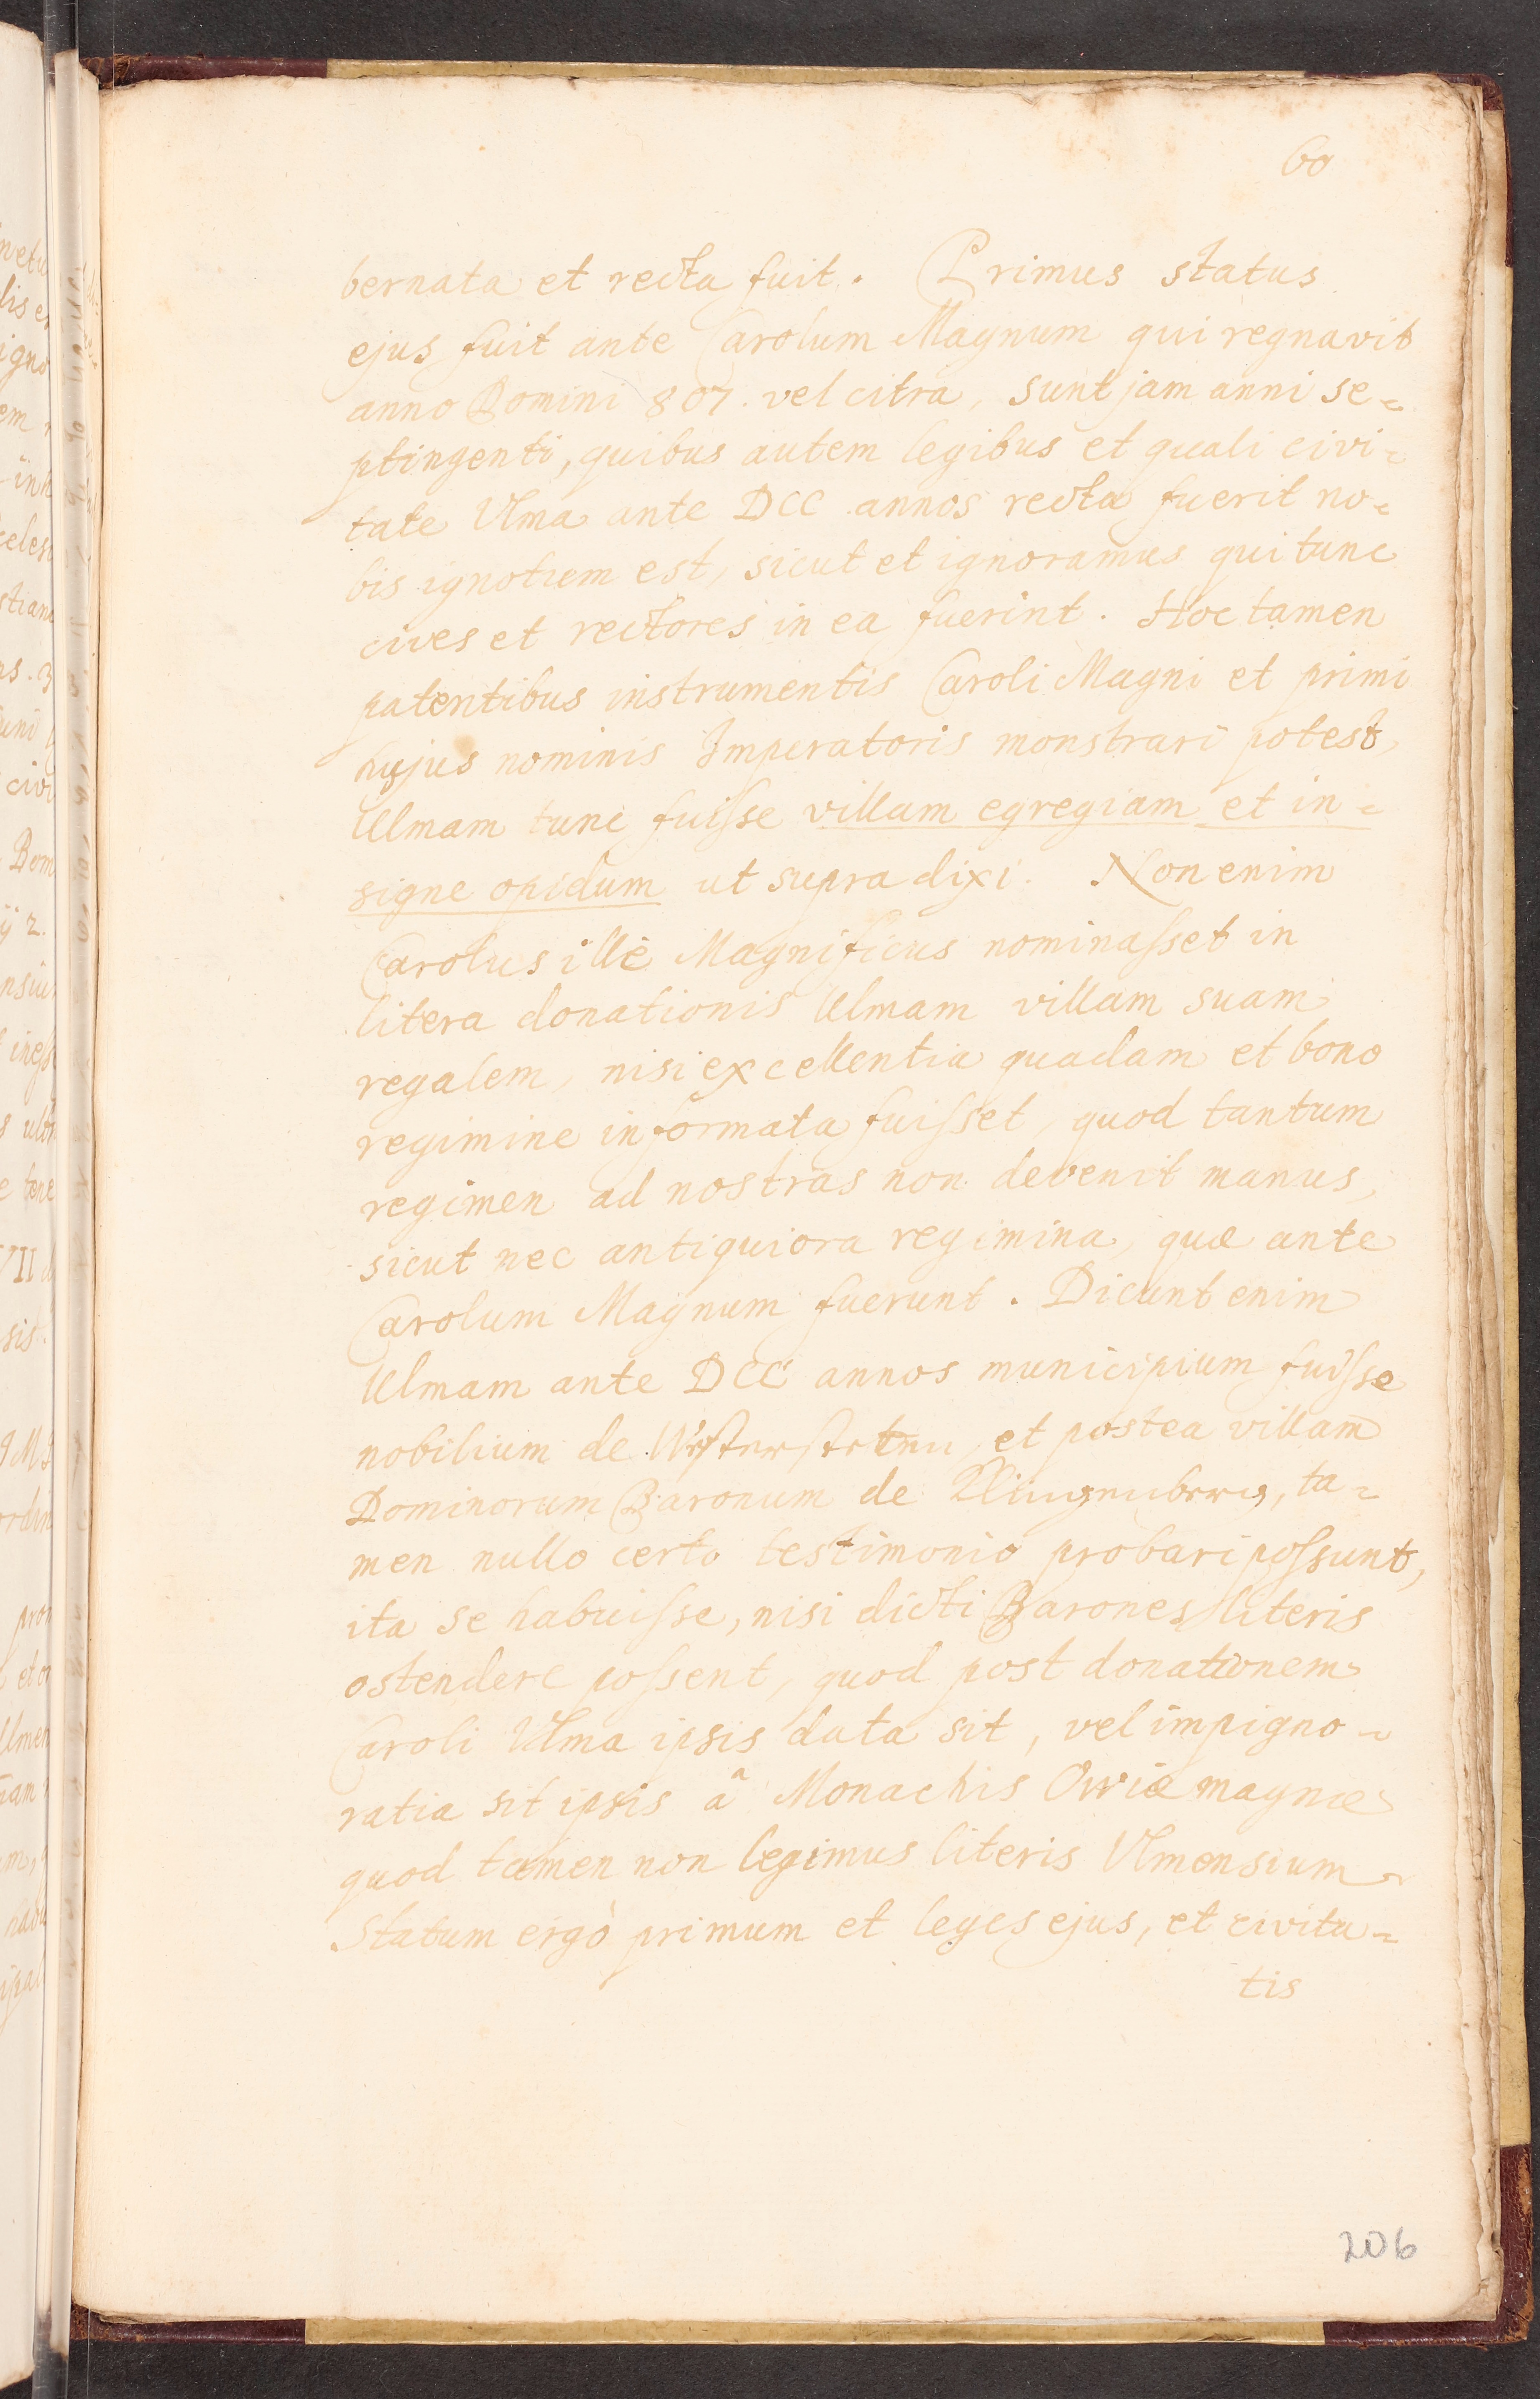 60
bernata et recta fuit. Primus status
ejus fuit ante Carolum Magnum qui regnavit
anno Domini 807. vel citra, sunt jam anni se=
ptingenti, quibus autem legibus et quali civi=
tate Ulma ante DCC annos recta fuerit no=
bis ignotum est, sicut et ignoramus qui tunc
cives et rectores in ea fuerint. Hoc tamen
patentibus instrumentis Caroli Magni et primi
hujus nominis Imperatoris monstrari potest,
Ulmam tunc fuisse villam egregiam et in=
signe opidum ut supra dixi. Non enim
Carolus ille Magnificus nominasset in
litera donationis Ulmam villam suam
regalem, nisi excellentia quadam et bono
regimine informata fuisset, quod tantum
regimen ad nostras non devenit manus,
sicut nec antiquiora regimina, quæ ante
Carolum Magnum fuerunt. Dicunt enim
Ulmam ante DCC annos municipium fuisse
nobilium de Westerstetten, et postea villam
Dominorum Baronum de Klingenberg, ta=
men nullo certo testimonio probari possunt,
ita se habuisse, nisi dicti Barones literis
ostendere possent, quod post donationem
Caroli Ulma ipsis data sit, vel impigno=
ratia sit ipsis â Monachis Owiæ magnæ
quod tamen non legimus literis Ulmensium
Statum ergò primum et leges ejus, et civita=
tis
206